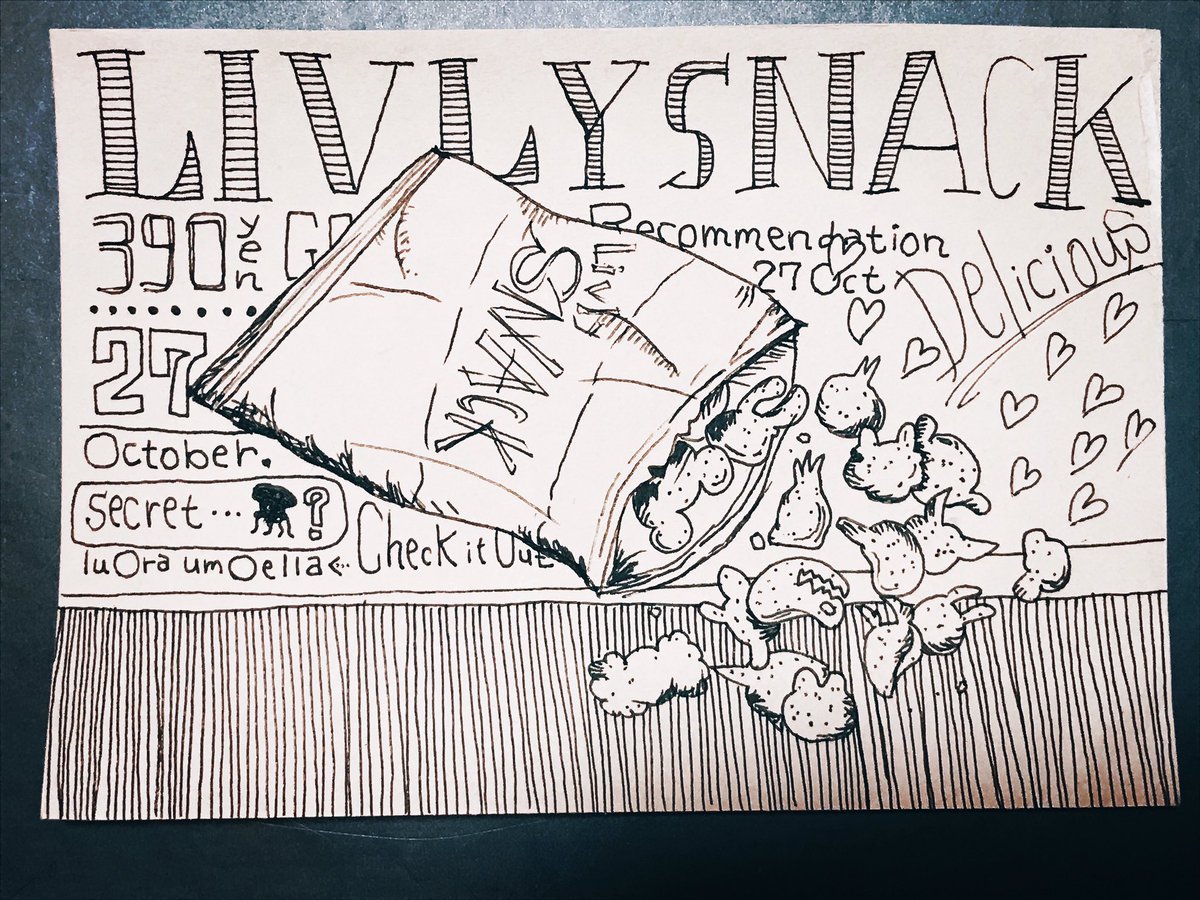 LIVLYSNACK
390yen G
Recommendation
27 Oct
Delicious
Livly
SNACK
27
October.
Secret…?
Check it Out
luOra umOella